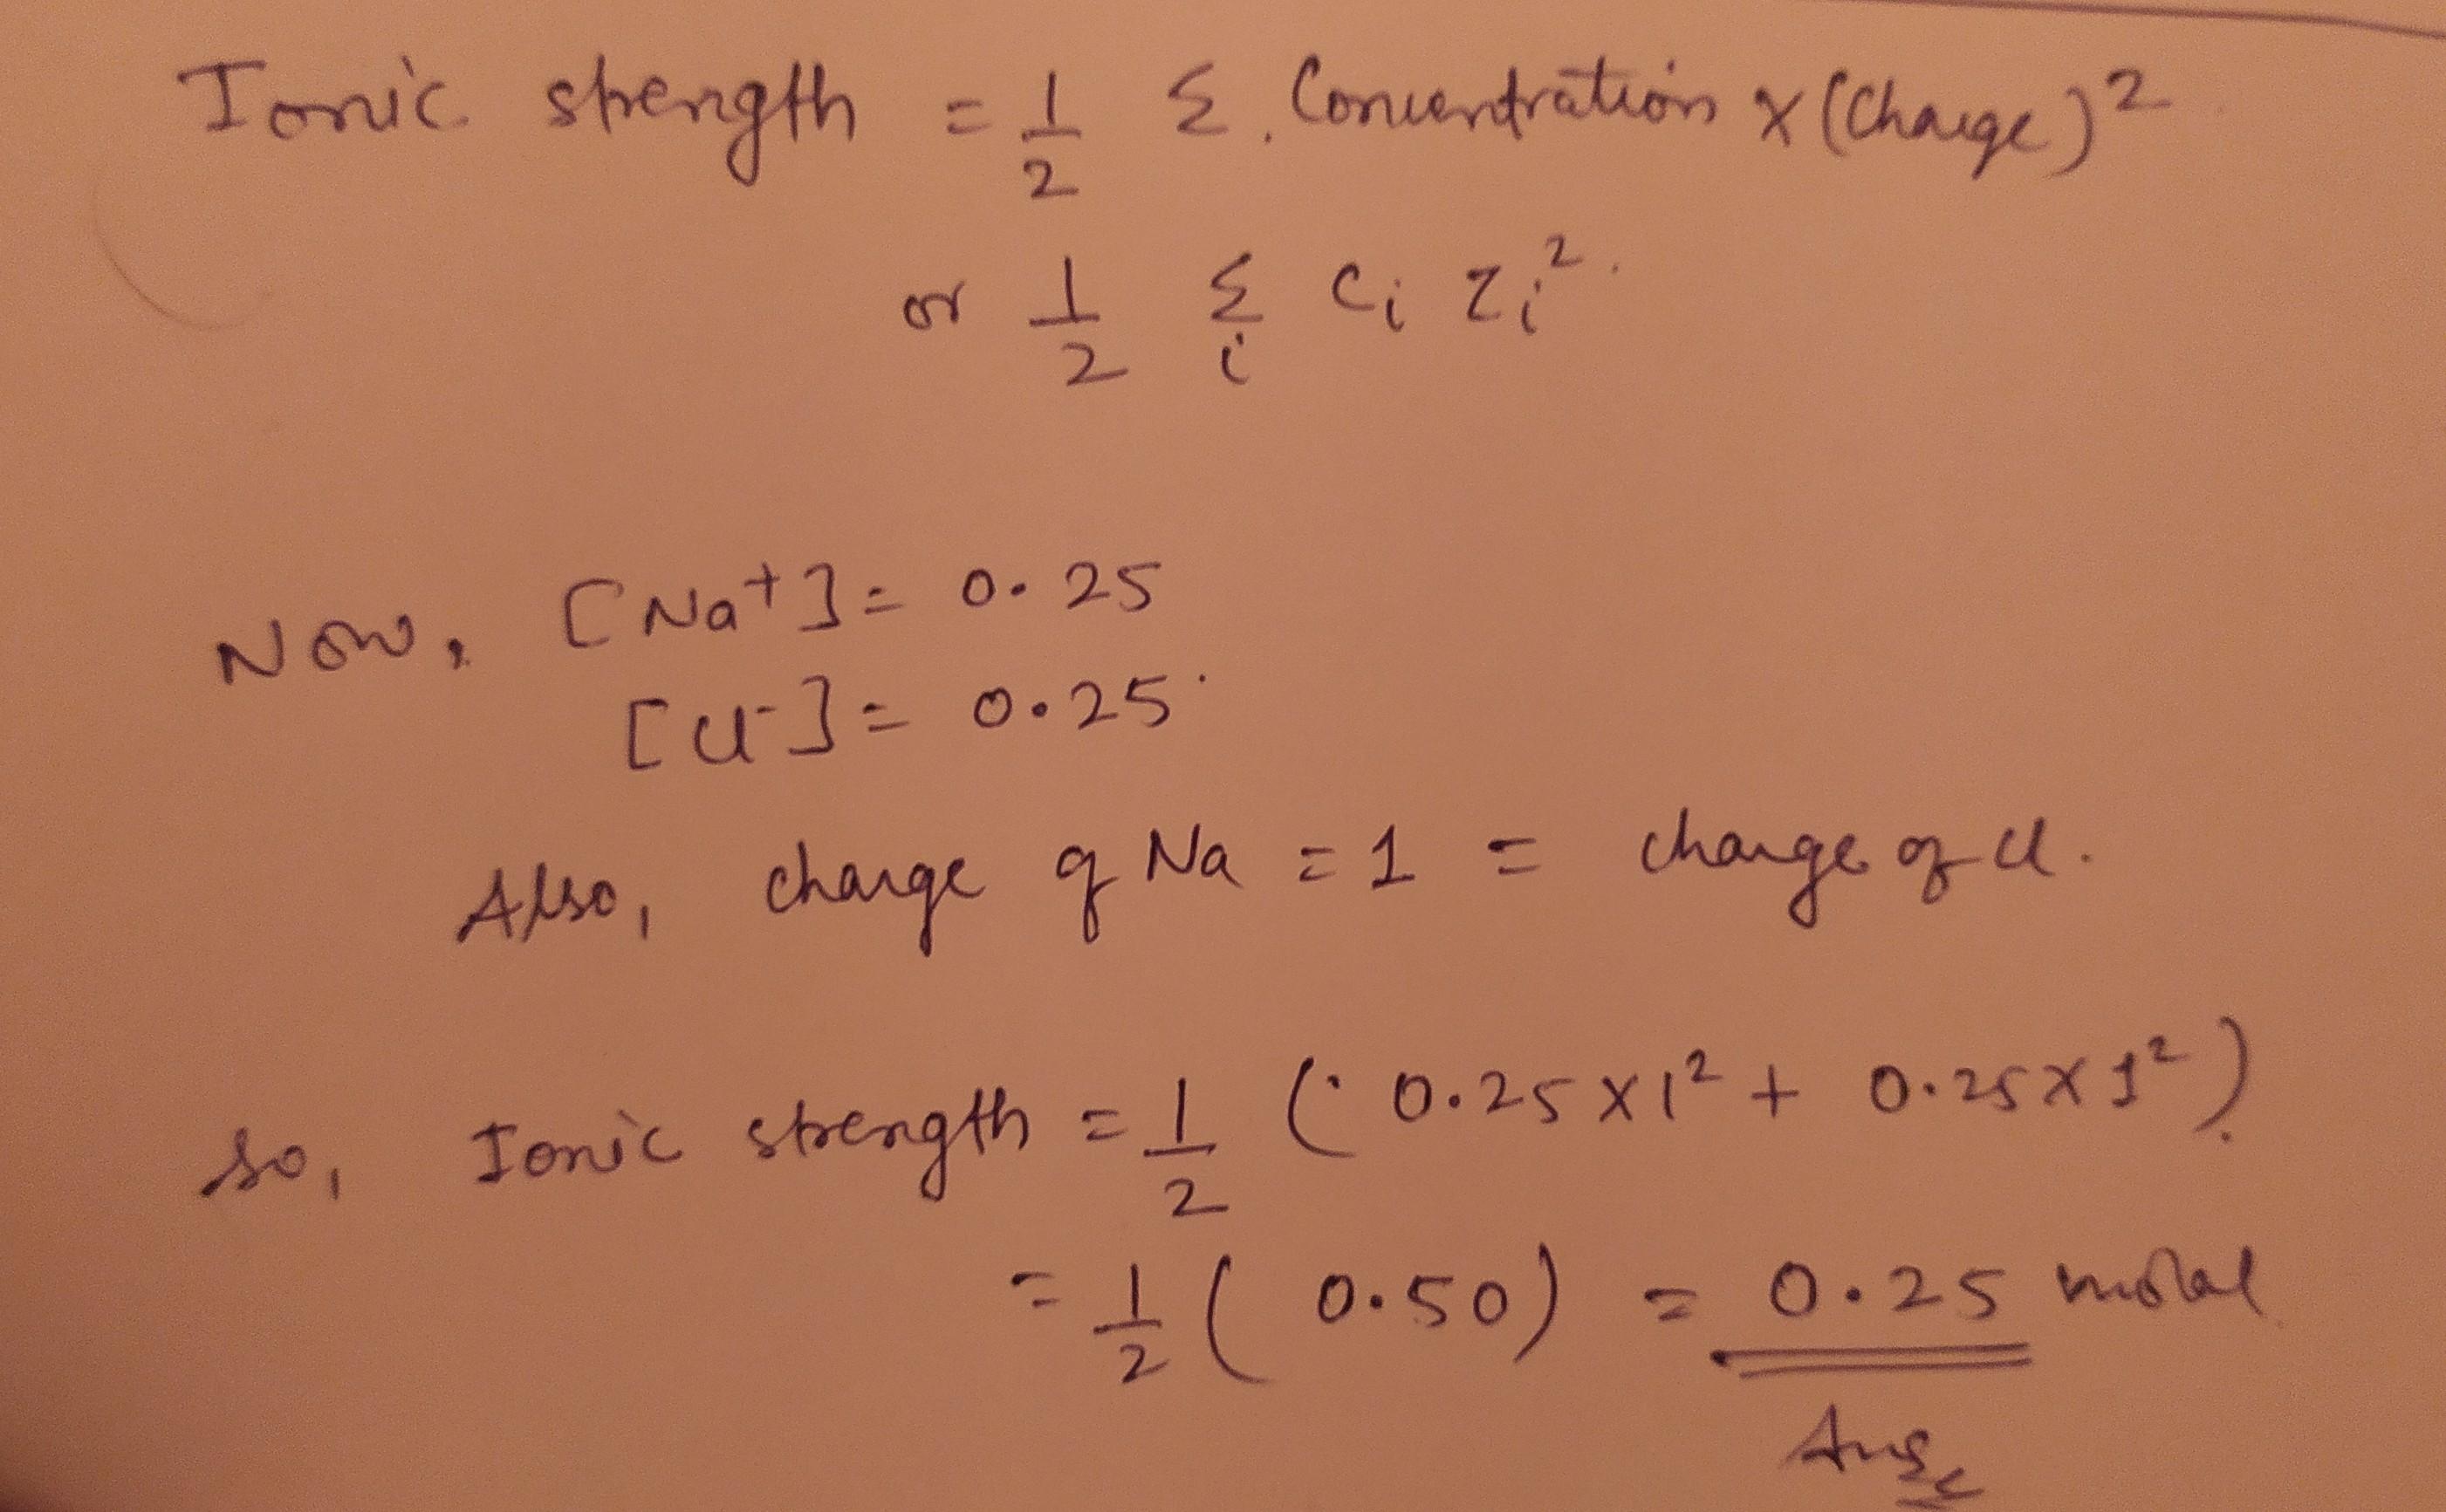 Ionic strength = 1/2 Σ. Concentration × (Charge)²
or 1/2 Σi Ci Zi².
Now, [Na⁺] = 0.25
[Cl⁻] = 0.25
Also, charge of Na = 1 = charge of Cl.
So, Ionic strength = 1/2 (0.25 × 1² + 0.25 × 1²).
= 1/2 (0.50) = 0.25 molal
Ans